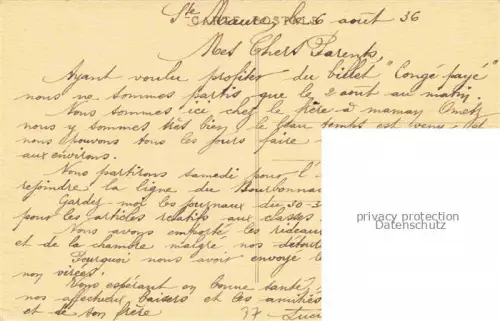 Ste Maure, le 6 août 36
CARTE POSTALE
Mes Chers Parents,
Ayant voulu profiter du billet "Congé payé"
nous ne sommes partis que le 2 août au matin.
Nous sommes ici chez le frère à maman
nous y sommes très bien, le beau temps est venu, et
nous pouvons tous les jours faire
aux environs.
Nous partirons samedi pour l'
rejoindre la ligne du Bourbonna
Gardez-moi les journaux du 30-3
pour les articles relatifs aux classes
Nous avons emporté les rideau
et de la chambre malgré nos détour
Pourquoi nous avoir envoyé le
non virées.
Vous espérant en bonne santé
nos affectueux baisers et les amitiés
et de son frère
37 Luci
privacy protection
Datenschutz